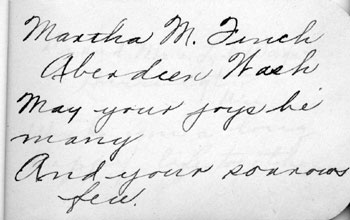 Martha M. Finch
Aberdeen Wash
May your joys be
many
And your sorrows
few.